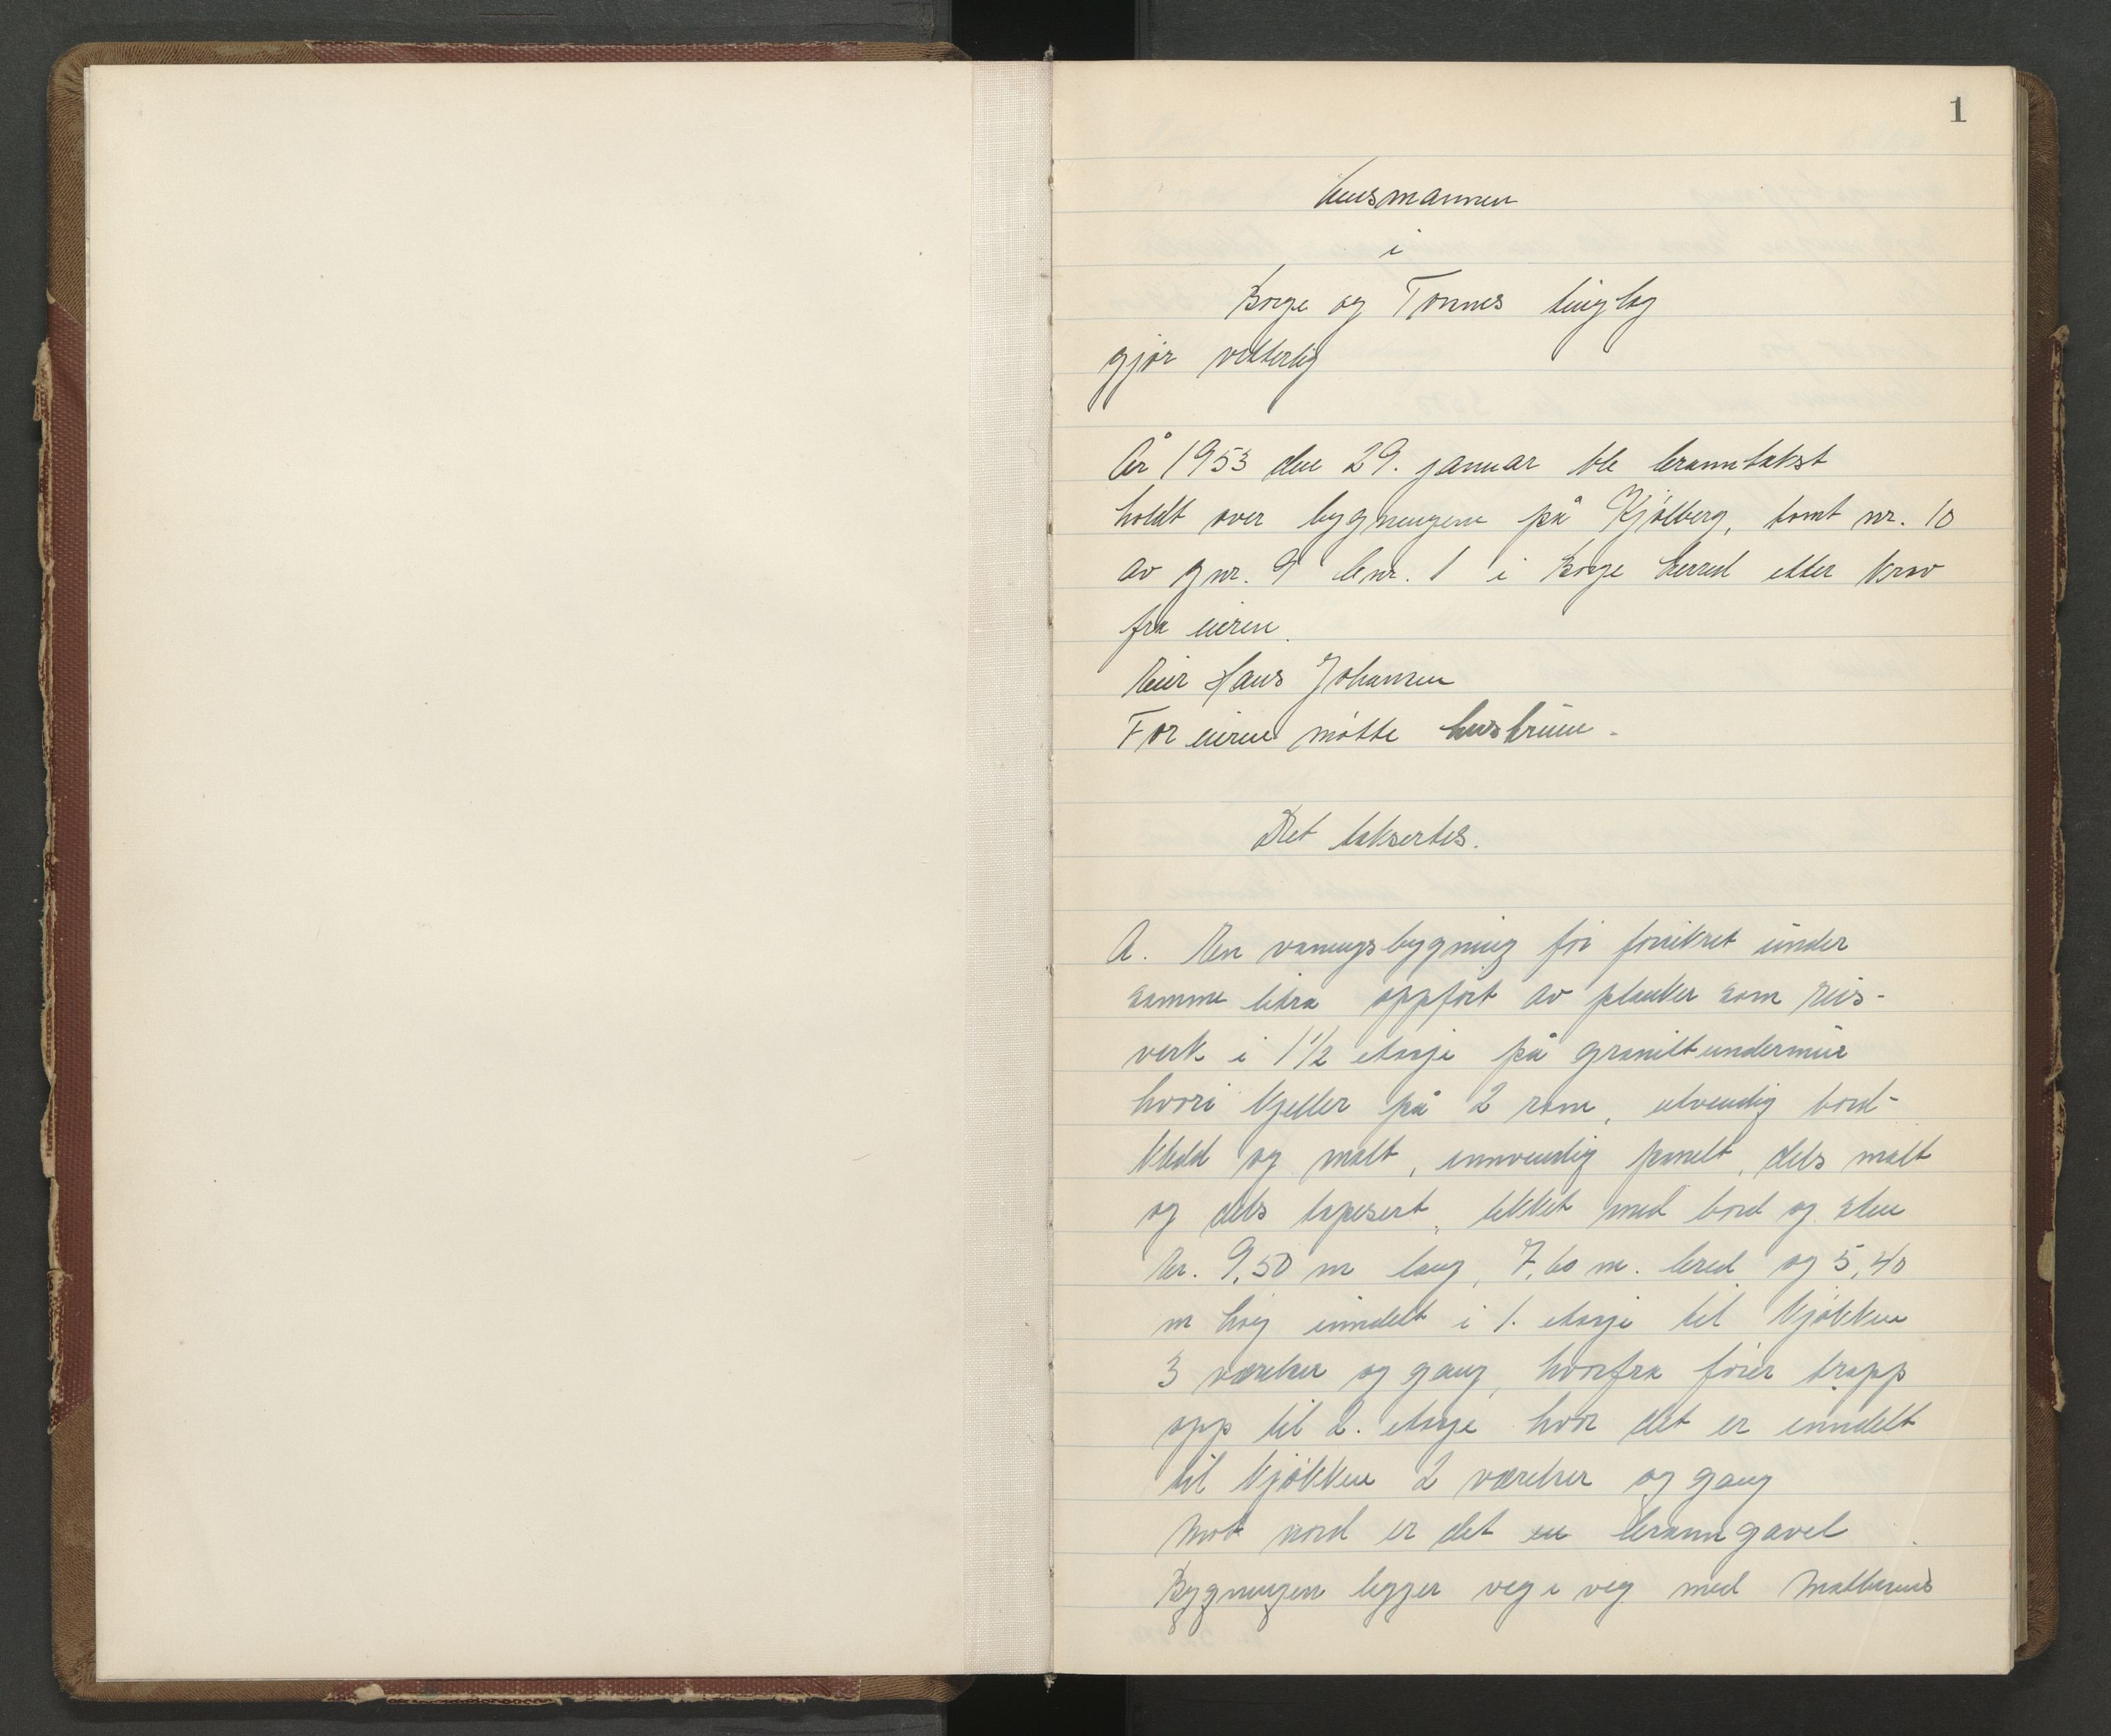 1
Lensmannen
i
Borge og Torsnes tinglag
gjør vitterlig
År 1953 den 29. januar ble branntakst
holdt over bygningene på Kjølberg, tomt nr. 10
av gnr. 9 bnr. 1 i Borge herred etter krav
fra eieren.
Eier Hans Johansen
For eieren møtte hustruen.
Det taksertes.
A. En våningsbygning før forsikret under
samme litra oppført av planker som reis-
verk i 1½ etasje på granittundermur
hvori kjeller på 2 rom, utvendig bord-
kledd og malt, innvendig panelt, dels malt
og dels tapesert, tekket med bord og sten
Er. 9,50 m lang, 7,60 m. bred og 5,40
m høy inndelt i 1. etasje til kjøkken
3 værelser og gang, hvorfra fører trapp
opp til 2. etasje hvor det er inndelt
til kjøkken 2 værelser og gang
Mot nord er det en branngavel
Bygningen ligger veg i veg med